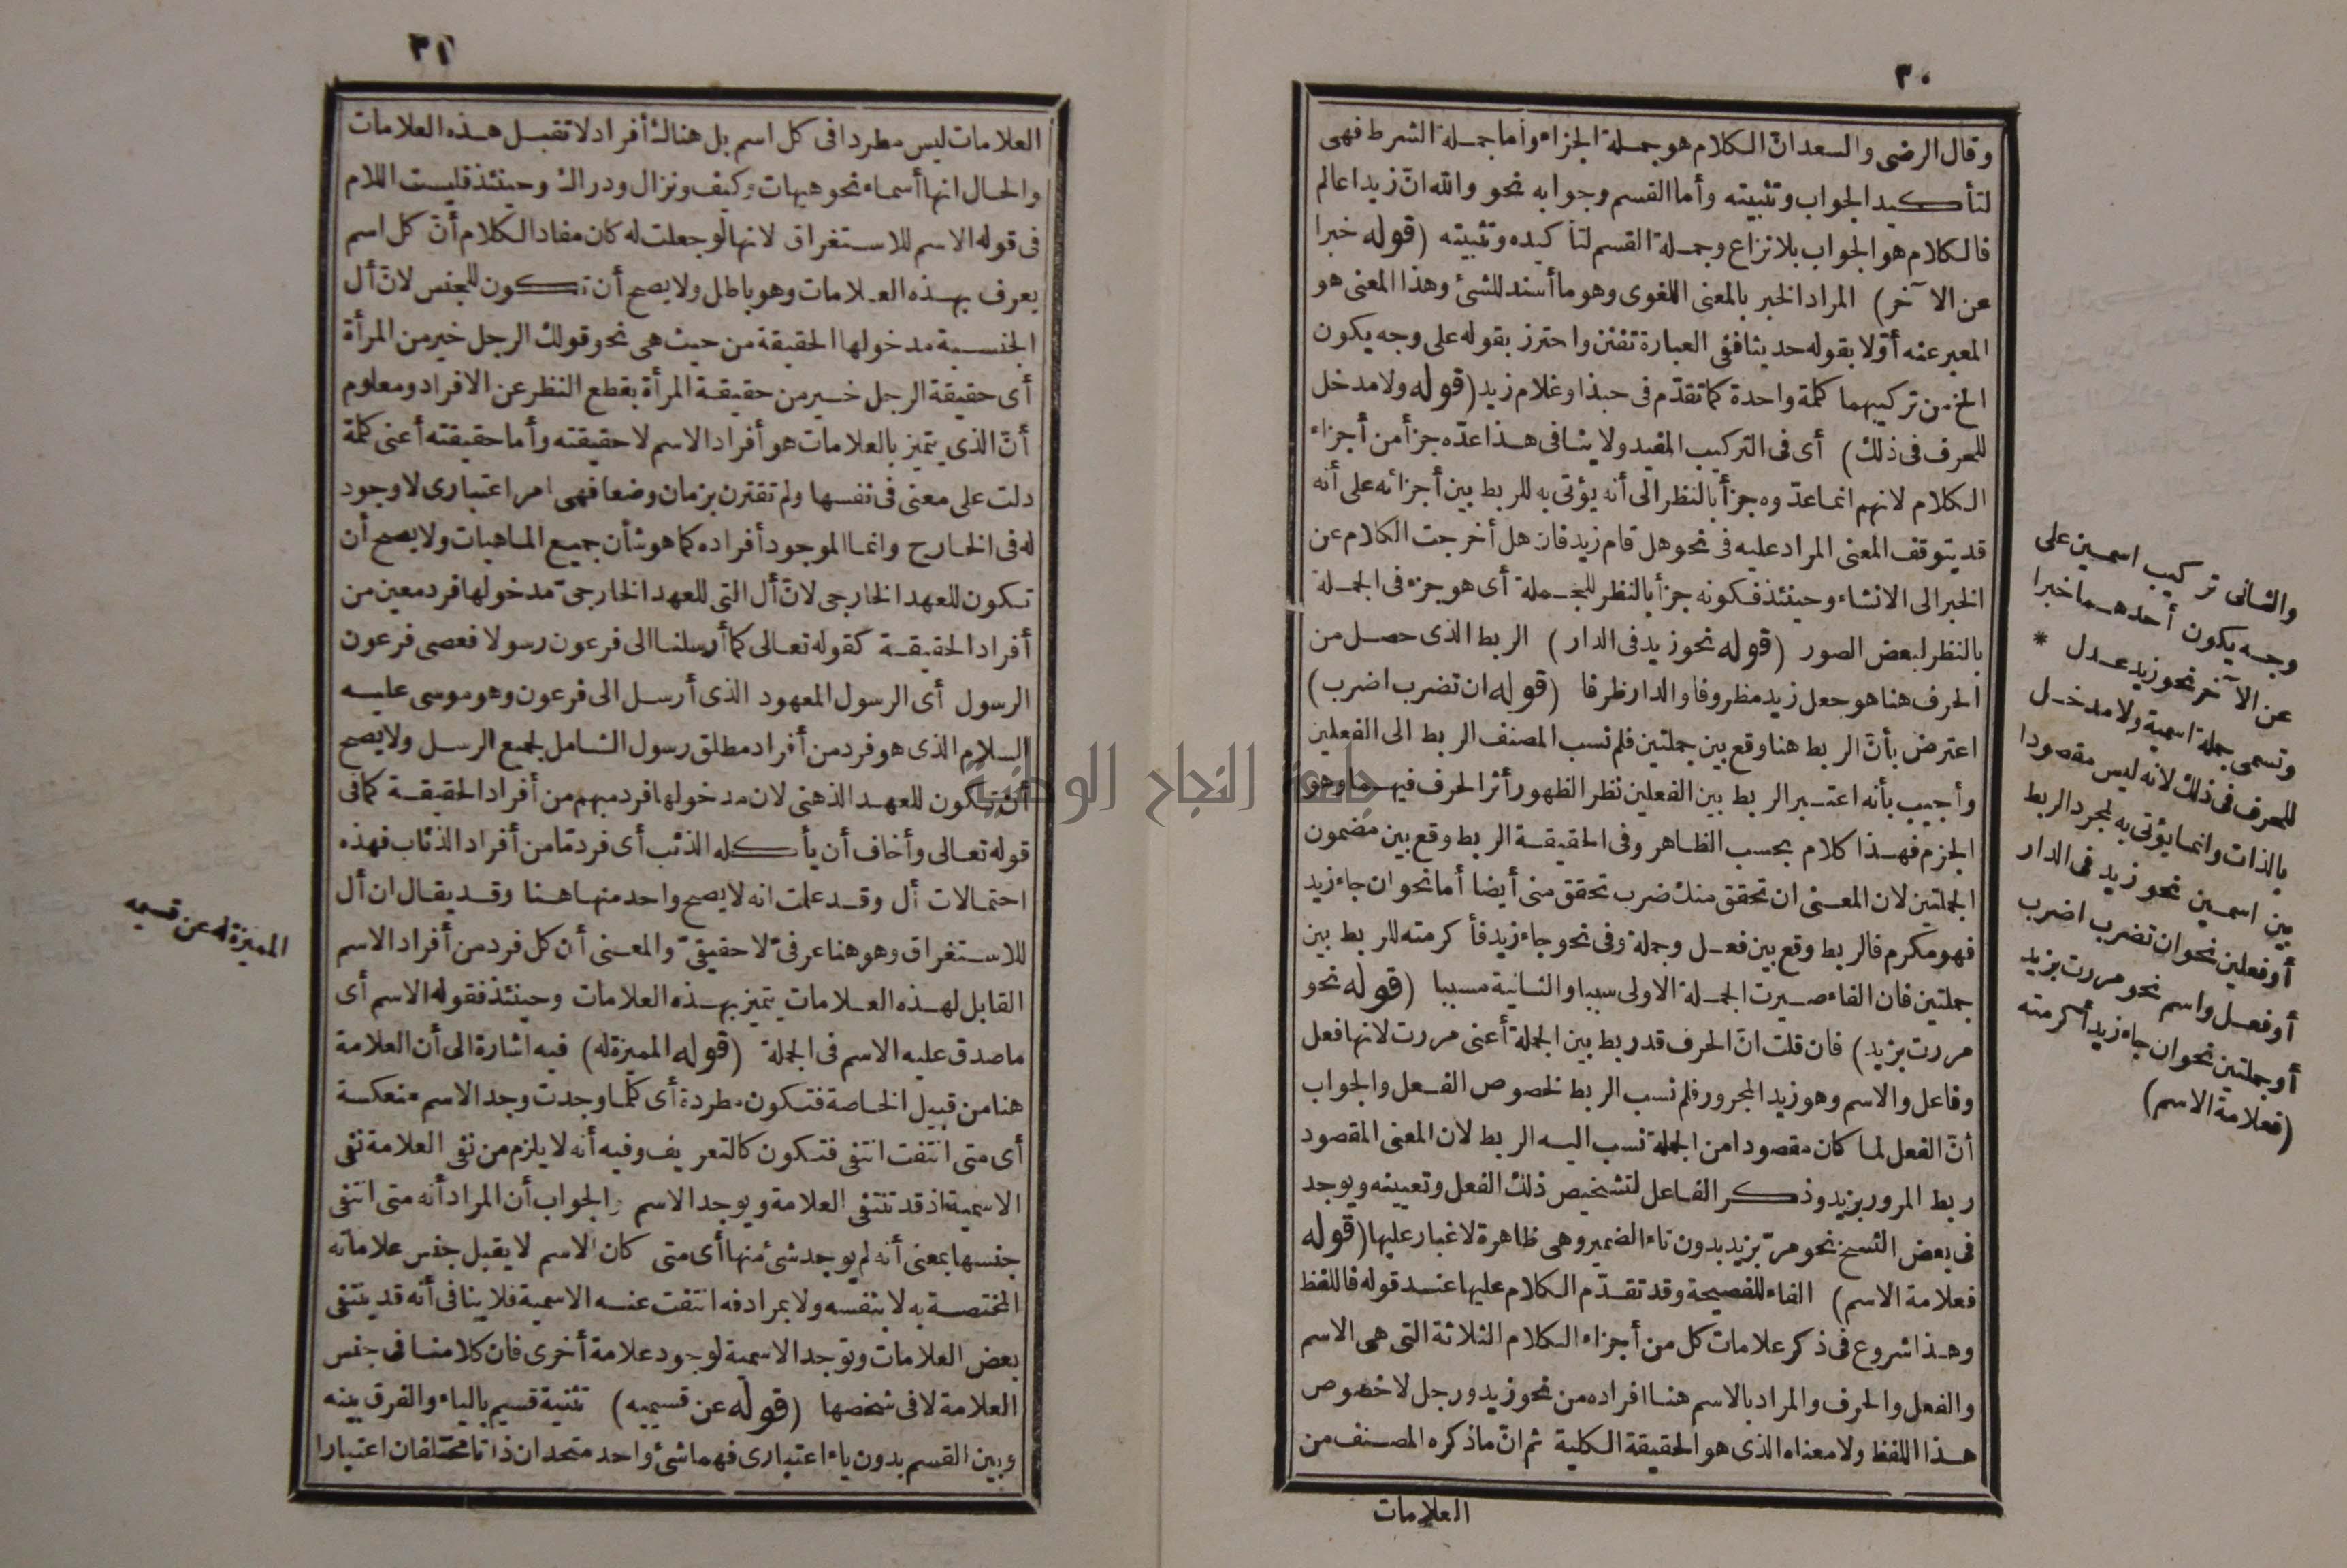 ٣٠
وقال الرضى والسعد انّ الكلام هو جملة الجزاء وأما جملة الشرط فهى
لتأكيد الجواب وتثبيته وأما القسم وجوابه نحو والله انّ زيدا عالم
فالكلام هو الجواب بلا نزاع وجملة القسم لتأكيده وتثبيته (قوله خبرا
عن الآخر) المراد الخبر بالمعنى اللغوى وهو ما أسند للشئ وهذا المعنى هو
المعبر عنه أوّلا بقوله حديثا ففى العبارة تفنن واحترز بقوله على وجه يكون
الخ من تركيبهما كلمة واحدة كما تقدّم فى حبذا وغلام زيد (قوله ولا مدخل
للحرف فى ذلك) أى فى التركيب المفيد ولا ينافى هذا عدّه جزأ من أجزاء
الكلام لانهم انما عدّوه جزأ بالنظر الى أنه يؤتى به للربط بين أجزائه على أنه
قد يتوقف المعنى المراد عليه فى نحو هل قام زيد فان هل أخرجت الكلام عن
الخبر الى الانشاء وحينئذ فكونه جزأ بالنظر للجملة أى هو جزء فى الجملة
بالنظر لبعض الصور (قوله نحو زيد فى الدار) الربط الذى حصل من
الحرف هنا هو جعل زيد مظروفا والدار ظرفا (قوله ان تضرب اضرب)
اعترض بأنّ الربط هنا وقع بين جملتين فلم نسب المصنف الربط الى الفعلين
وأجيب بأنه اعتبر الربط بين الفعلين نظر الظهور أثر الحرف فيهما وهو
الجزم فهذا كلام بحسب الظاهر وفى الحقيقة الربط وقع بين مضمون
الجملتين لان المعنى ان تحقق منك ضرب تحقق منى أيضا أما نحو ان جاء زيد
فهو مكرم فالربط وقع بين فعل وجملة وفى نحو جاء زيد فأكرمته للربط بين
جملتين فان الفاء صيرت الجملة الاولى سببا والثانية مسببا (قوله نحو
مررت بزيد) فان قلت انّ الحرف قد ربط بين الجملة أعنى مررت لانها فعل
وفاعل والاسم وهو زيد المجرور فلم نسب الربط لخصوص الفعل والجواب
أنّ الفعل لما كان مقصودا من الجملة نسب اليه الربط لان المعنى المقصود
ربط المرور بزيد وذكر الفاعل لتشخيص ذلك الفعل وتعيينه ويوجد
فى بعض النسخ نحو مرّ بزيد بدون تاء الضمير وهى ظاهرة لا غبار عليها (قوله
فعلامة الاسم) الفاء للفصيحة وقد تقدّم الكلام عليها عند قوله فاللفظ
وهذا شروع فى ذكر علامات كل من أجزاء الكلام الثلاثة التى هى الاسم
والفعل والحرف والمراد بالاسم هنا افراده من نحو زيد ورجل لا خصوص
هذا اللفظ ولا معناه الذى هو الحقيقة الكلية ثم انّ ما ذكره المصنف من
العلامات
والثانى تركيب اسمين على
وجه يكون أحدهما خبرا
عن الآخر نحو زيد عدل *
وتسمى جملة اسمية ولا مدخل
للحرف فى ذلك لانه ليس مقصودا
بالذات وانما يؤتى به لمجرد الربط
بين اسمين نحو زيد فى الدار
أو فعلين نحو ان تضرب اضرب
أو فعل واسم نحو مررت بزيد
أو جملتين نحو ان جاء زيد أكرمته
(فعلامة الاسم)
٣١
العلامات ليس مطردا فى كل اسم بل هناك أفراد لا تقبل هذه العلامات
والحال انها أسماء نحو هيهات وكيف ونزال ودراك وحينئذ فليست اللام
فى قوله الاسم للاستغراق لانها لو جعلت له كان مفاد الكلام أنّ كل اسم
يعرف بهذه العلامات وهو باطل ولا يصح أن تكون للجنس لانّ أل
الجنسية مدخولها الحقيقة من حيث هى نحو قولك الرجل خير من المرأة
أى حقيقة الرجل خير من حقيقة المرأة بقطع النظر عن الافراد ومعلوم
أنّ الذى يتميز بالعلامات هو أفراد الاسم لا حقيقته وأما حقيقته أعنى كلمة
دلت على معنى فى نفسها ولم تقترن بزمان وضعا فهى امر اعتبارى لا وجود
له فى الخارج وانما الموجود أفراده كما هو شأن جميع الماهيات ولا يصح أن
تكون للعهد الخارجى لانّ أل التى للعهد الخارجىّ مدخولها فرد معين من
أفراد الحقيقة كقوله تعالى كما أرسلنا الى فرعون رسولا فعصى فرعون
الرسول أى الرسول المعهود الذى أرسل الى فرعون وهو موسى عليه
السلام الذى هو فرد من أفراد مطلق رسول الشامل لجميع الرسل ولا يصح
أن تكون للعهد الذهنى لان مدخولها فرد مبهم من أفراد الحقيقة كما فى
قوله تعالى وأخاف أن يأكله الذئب أى فرد مّا من أفراد الذئاب فهذه
احتمالات أل وقد علمت انه لا يصح واحد منها هنا وقد يقال ان أل
للاستغراق وهو هنا عرفىّ لا حقيقىّ والمعنى أن كل فرد من أفراد الاسم
القابل لهذه العلامات يتميز بهذه العلامات وحينئذ فقوله الاسم أى
ما صدق عليه الاسم فى الجملة (قوله المميزة له) فيه اشارة الى أن العلامة
هنا من قبيل الخاصة فتكون مطردة أى كلما وجدت وجد الاسم منعكسة
أى متى انتفت انتفى فتكون كالتعريف وفيه أنه لا يلزم من نفى العلامة نفى
الاسمية اذ قد تنتفى العلامة ويوجد الاسم والجواب أن المراد أنه متى انتفى
جنسها بمعنى أنه لم يوجد شئ منها أى متى كان الاسم لا يقبل جنس علاماته
المختصة به لا بنفسه ولا بمرادفه انتفت عنه الاسمية فلا ينافى أنه قد ينتفى
بعض العلامات وتوجد الاسمية لوجود علامة أخرى فان كلامنا فى جنس
العلامة لا فى شخصها (قوله عن قسيميه) تثنية قسيم بالياء والفرق بينه
وبين القسم بدون ياء اعتبارى فهما شئ واحد متحدان ذاتا مختلفان اعتبارا
المميزة له عن قسيميه
جامعة النجاح الوطنية